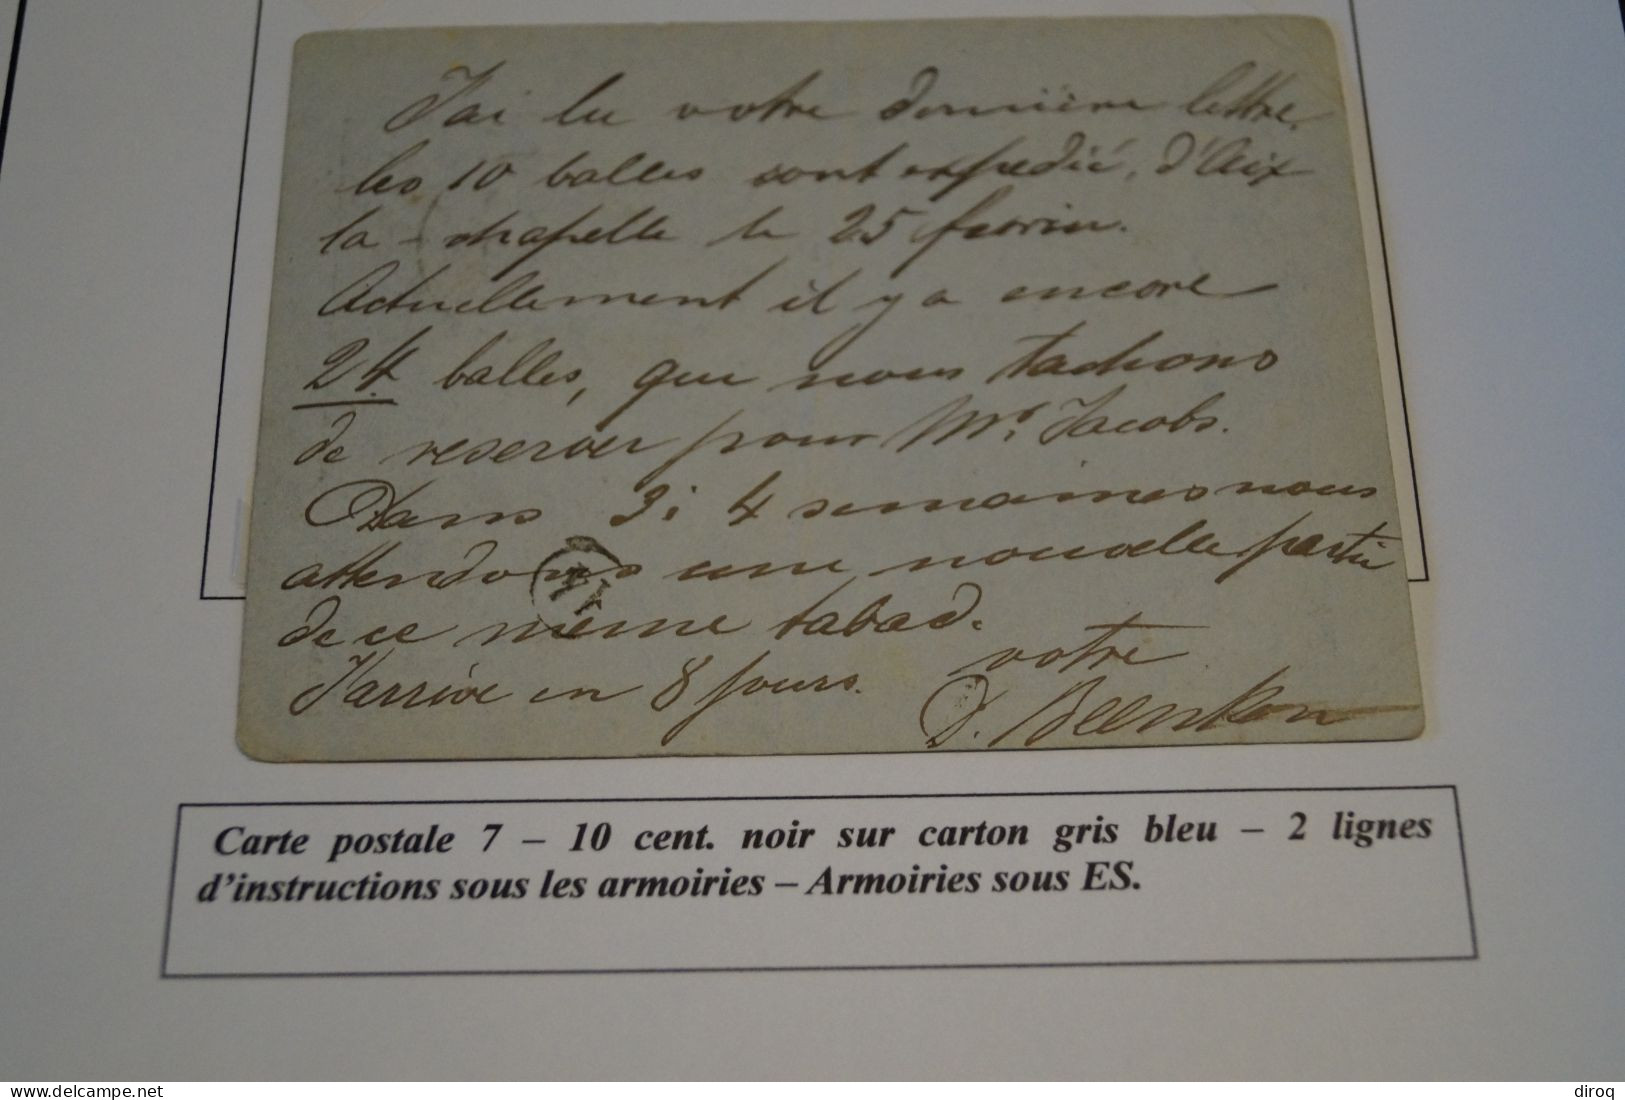 J'ai lu votre dernière lettre,
les 10 balles sont expedié, d'Aix
la-chapelle le 25 fevrier.
Actuellement il y a encore
24 balles, que nous tachons
de reserver pour Mr. Jacobs.
Dans 3 i 4 semaines nous
attendons une nouvelle partie
de ce même tabac.
J'arrive en 8 jours. votre
D.
Carte postale 7 – 10 cent. noir sur carton gris bleu – 2 lignes
d'instructions sous les armoiries – Armoiries sous ES.
delcampe.net
diroq